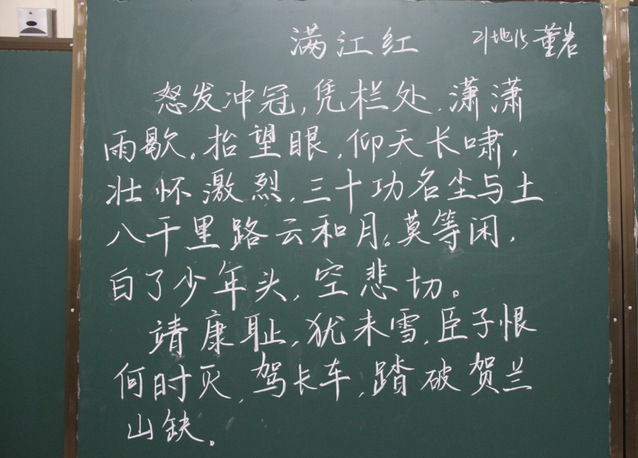 满江红 21地化 董岩
怒发冲冠,凭栏处.潇潇
雨歇。抬望眼,仰天长啸,
壮怀激烈,三十功名尘与土
八千里路云和月。莫等闲,
白了少年头,空悲切。
靖康耻,犹未雪,臣子恨
何时灭,驾长车,踏破贺兰
山缺。